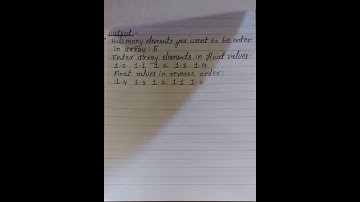 Output:-
How many elements you want to be enter
in array : 5
Enter array elements in float values:
1.0 1.1 1.2 1.3 1.4
Float values in reverse order:
1.4 1.3 1.2 1.1 1.0